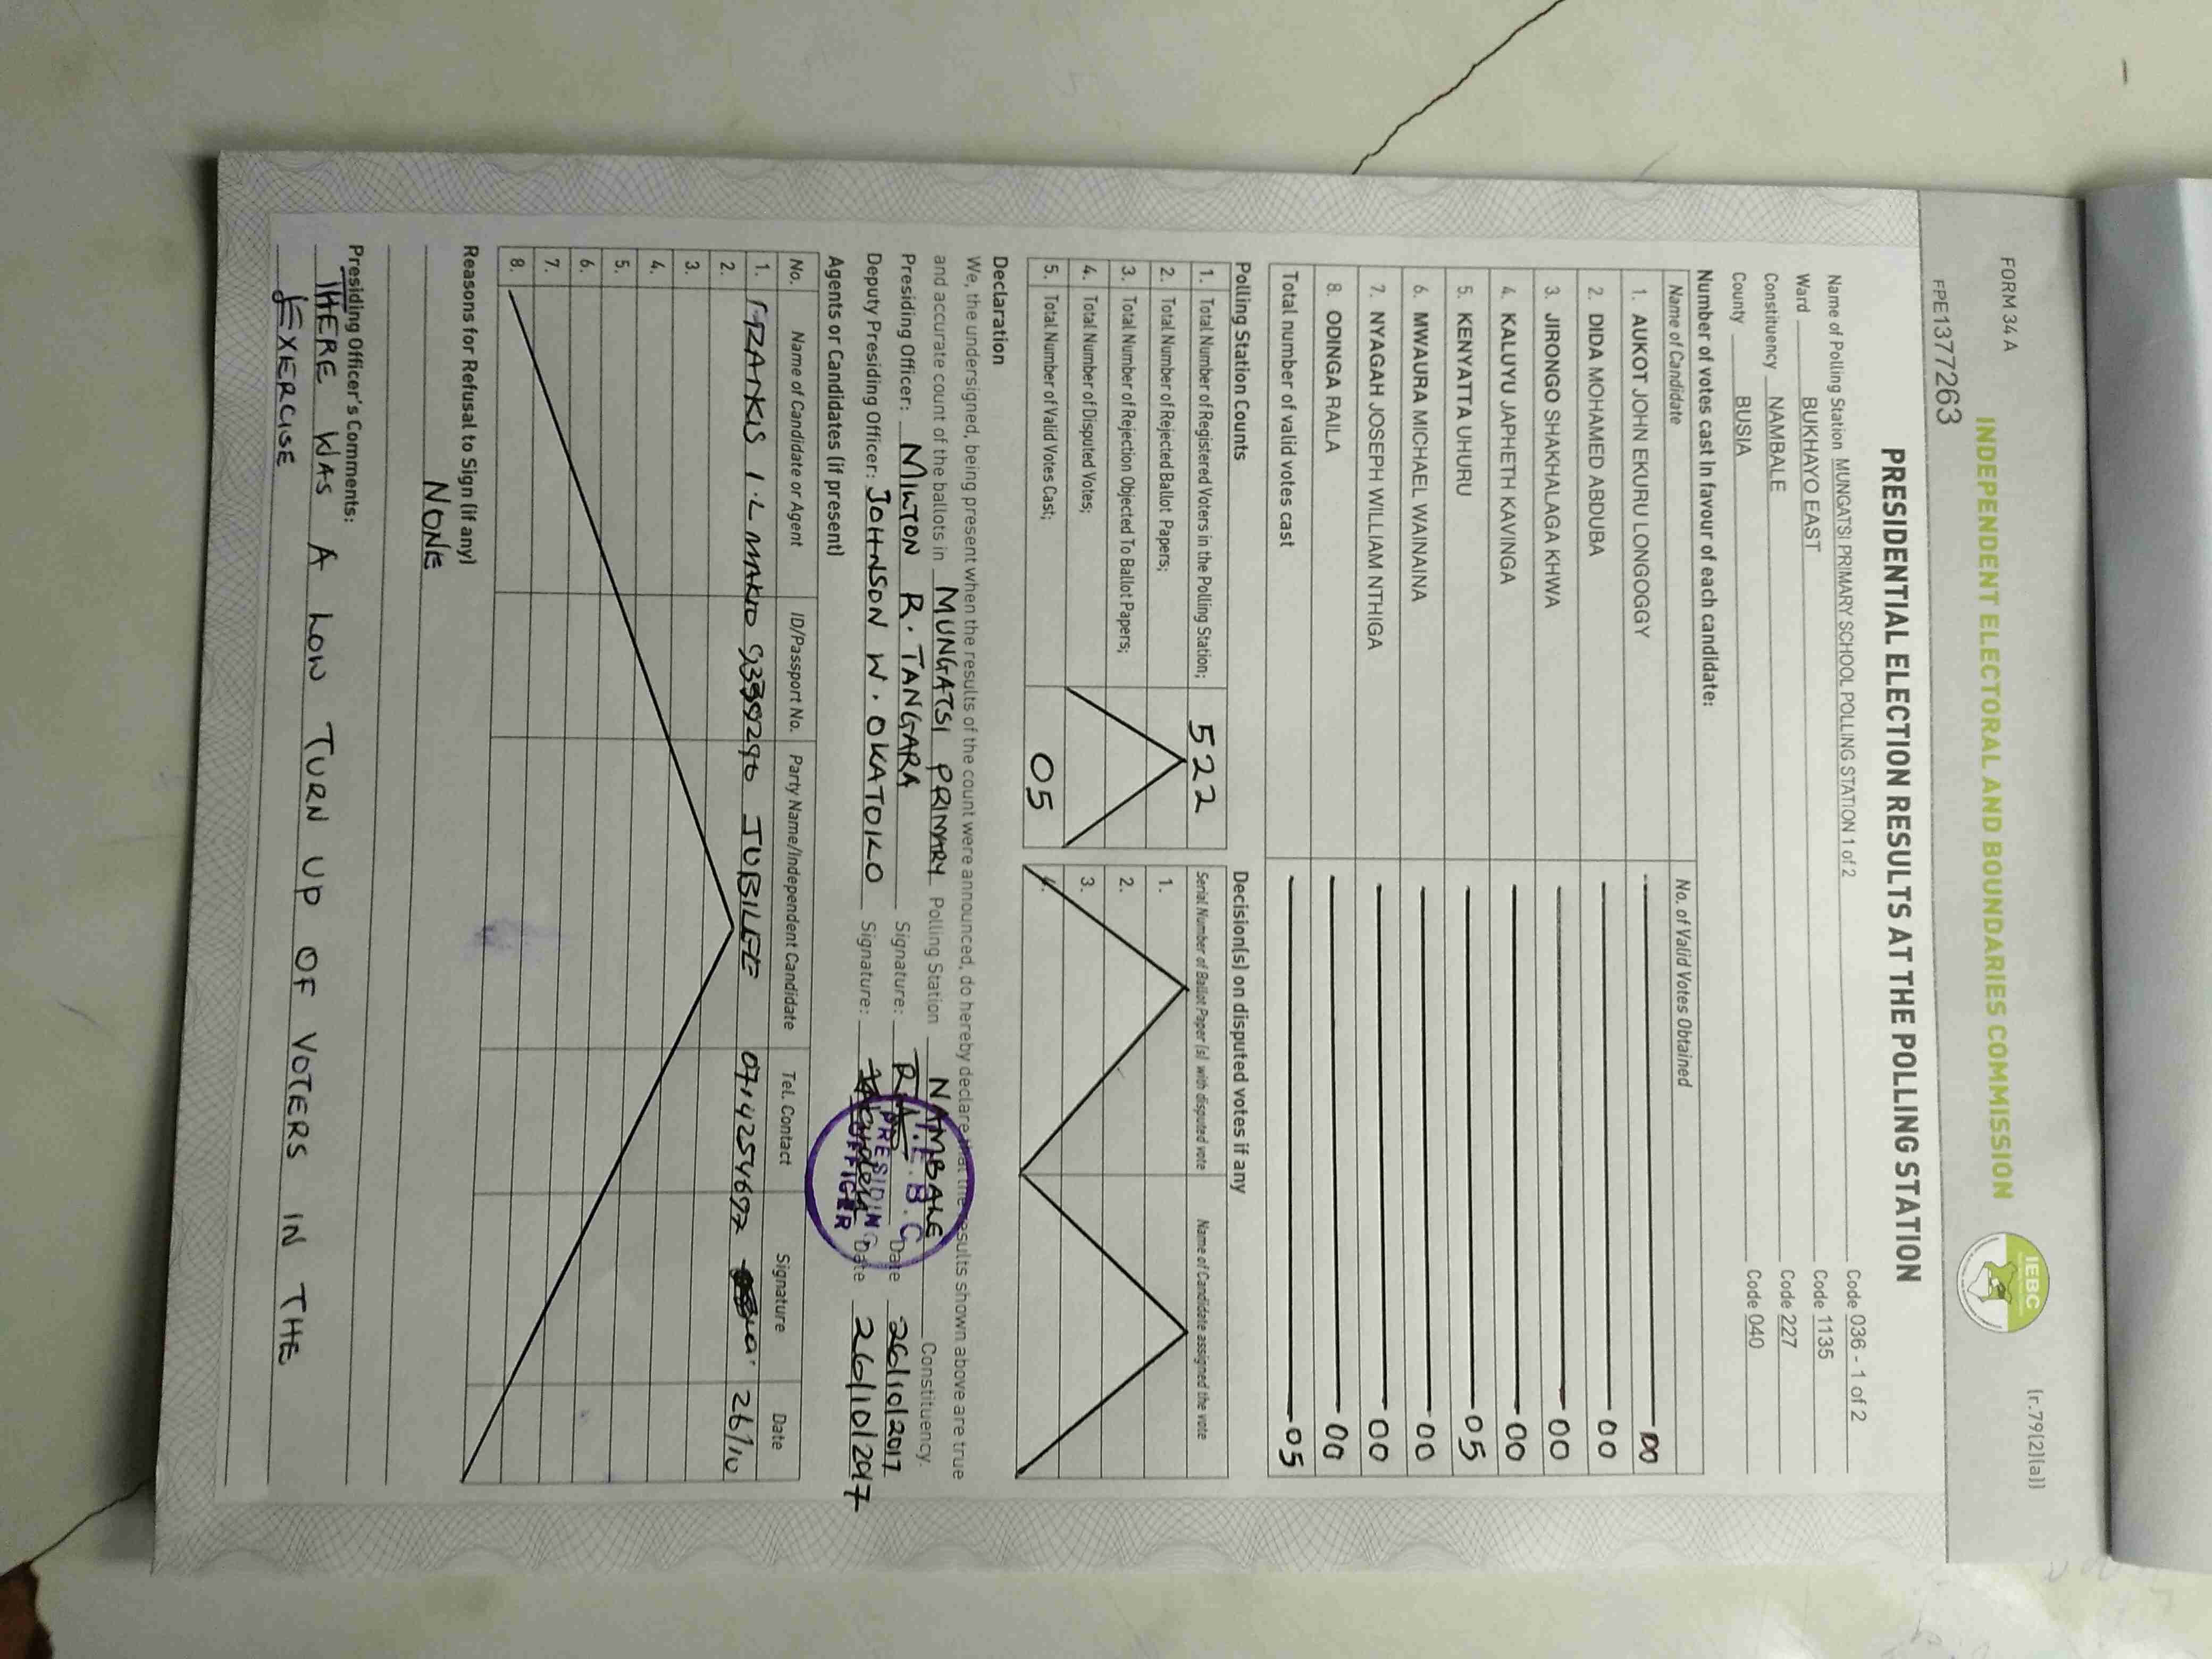 FORM 34 A
(r.79(2)(a))
INDEPENDENT ELECTORAL AND BOUNDARIES COMMISSION
IEBC
FPE1377263
PRESIDENTIAL ELECTION RESULTS AT THE POLLING STATION
Name of Polling Station MUNGATSI PRIMARY SCHOOL POLLING STATION 1 of 2 Code 036 - 1 of 2
Ward BUKHAYO EAST Code 1135
Constituency NAMBALE Code 227
County BUSIA Code 040
Number of votes cast in favour of each candidate:
Name of Candidate No. of Valid Votes Obtained
1. AUKOT JOHN EKURU LONGOGGY 00
2. DIDA MOHAMED ABDUBA 00
3. JIRONGO SHAKHALAGA KHWA 00
4. KALUYU JAPHETH KAVINGA 00
5. KENYATTA UHURU 05
6. MWAURA MICHAEL WAINAINA 00
7. NYAGAH JOSEPH WILLIAM NTHIGA 00
8. ODINGA RAILA 00
Total number of valid votes cast 05
Polling Station Counts
1. Total Number of Registered Voters in the Polling Station; 522
2. Total Number of Rejected Ballot Papers;
3. Total Number of Rejection Objected To Ballot Papers;
4. Total Number of Disputed Votes;
5. Total Number of Valid Votes Cast; 05
Decision(s) on disputed votes if any
Serial Number of Ballot Paper (s) with disputed vote Name of Candidate assigned the vote
1.
2.
3.
4.
Declaration
We, the undersigned, being present when the results of the count were announced, do hereby declare that the results shown above are true
and accurate count of the ballots in MUNGATSI PRIMARY Polling Station NAMBALE Constituency.
Presiding Officer: MILTON R. TANGARA Signature: Date 26/10/2017
Deputy Presiding Officer: JOHNSON W. OKATOIKO Signature: Date 26/10/2017
I.E.B.C
PRESIDING
OFFICER
Agents or Candidates (if present)
No. Name of Candidate or Agent ID/Passport No. Party Name/Independent Candidate Tel. Contact Signature Date
1. JUBILEE 0714254697 26/10
2.
3.
4.
5.
6.
7.
8.
Reasons for Refusal to Sign (if any)
NONE
Presiding Officer's Comments:
THERE WAS A LOW TURN UP OF VOTERS IN THE
EXERCISE